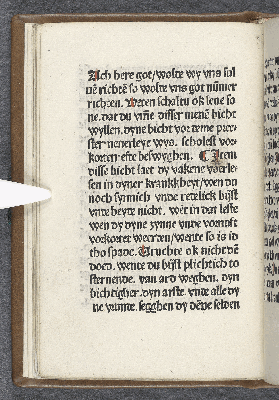 Ach here got/wolte wy vns sol
uē richtē so wolte vns got nūmer
richten. Weten schaltu ok leue so
ne. dat du vīne disser menē bicht
wyllen. dyne bicht vor teme pree
ster nenerleye wys. scholest vor
korten efte beswyghen. ¶ Item
disse bicht laet dy vakene vorle-
sen in dyner kranckheyt/wen du
noch synnich vnde redelick byst
vnde beyte nicht. wēt in dat leste
wen dy dyne synne vnde vornuft
vorkortet weerden/wente so is id
tho spade. Vruchte ok nicht dē
doed. wente du byst plichtich to
steruende. van ard weghen. dyn
bichtigher. dyn arste. vnde alle dy
ne vrunte. segghen dy dēne selden